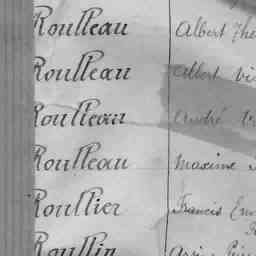 Roulleau Albert Thé
Roulleau Albert Vi
Roulleau André
Roulleau Maxime
Roullier Francis
Roullin